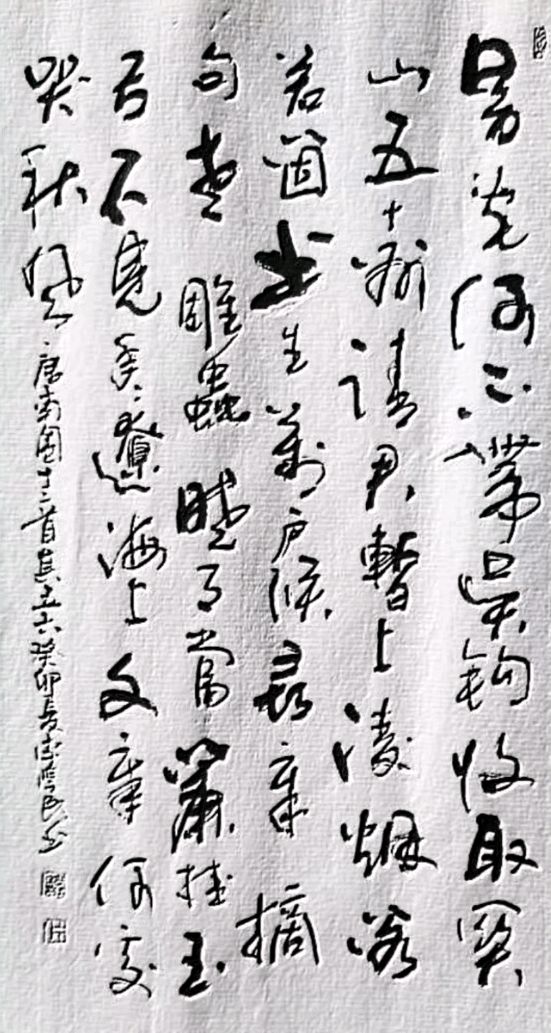 男兒何不帶吳鉤收取關
山五十州請君暫上凌煙閣
若箇書生萬戶侯尋章摘
句老雕蟲曉月當簾挂玉
弓不見年々遼海上文章何處
哭秋風 唐南園十三首其五六癸卯